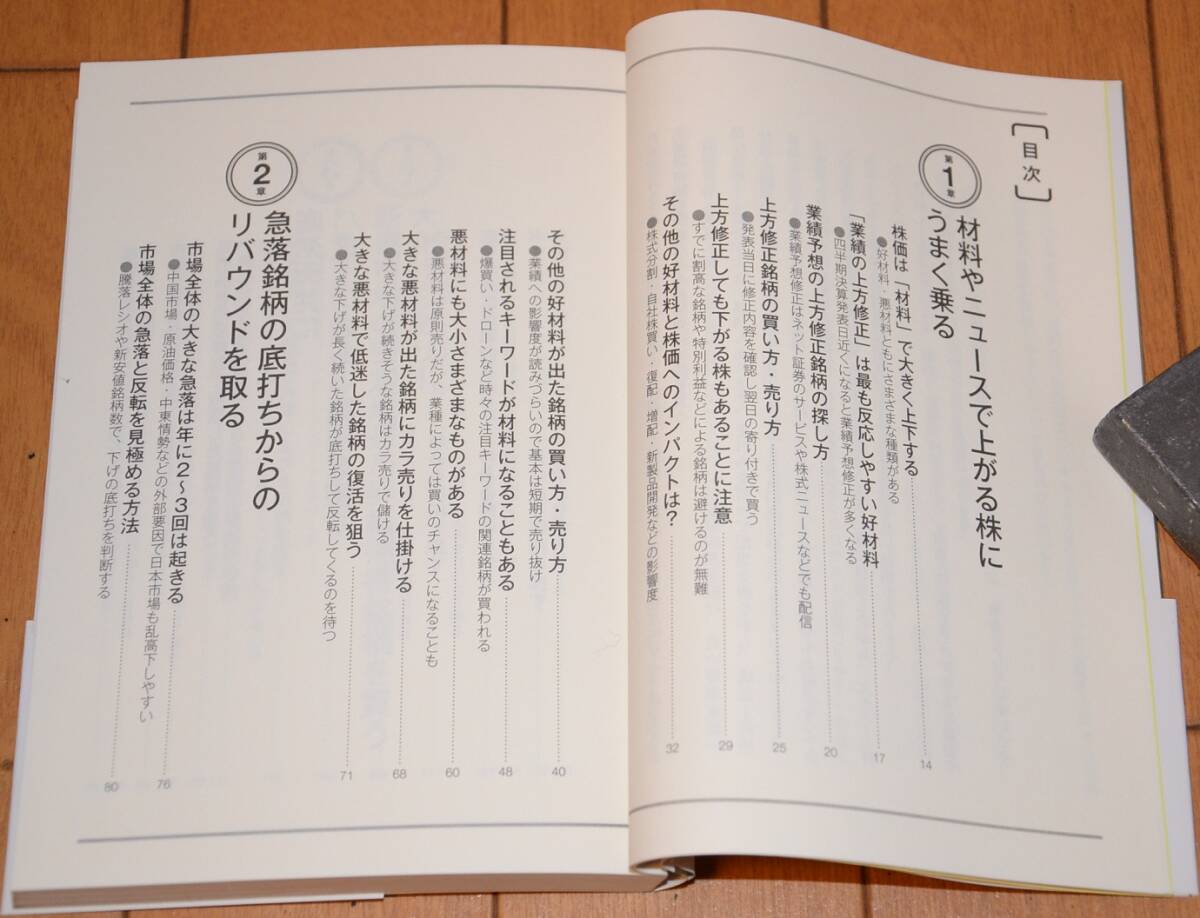 目次
第1章
材料やニュースで上がる株に
うまく乗る
株価は「材料」で大きく上下する 14
●好材料・悪材料ともにさまざまな種類がある
「業績の上方修正」は最も反応しやすい好材料 17
●四半期決算発表日近くになると業績予想修正が多くなる
業績予想の上方修正銘柄の探し方 20
●業績予想修正はネット証券のサービスや株式ニュースなどでも配信
上方修正銘柄の買い方・売り方 25
●発表当日に修正内容を確認し翌日の寄り付きで買う
上方修正しても下がる株もあることに注意 29
●すでに割高な銘柄や特別利益などによる銘柄は避けるのが無難
その他の好材料と株価へのインパクトは? 32
●株式分割・自社株買い・復配・増配・新製品開発などの影響度
その他の好材料が出た銘柄の買い方・売り方 40
●業績への影響度が読みづらいので基本は短期で売り抜け
注目されるキーワードが材料になることもある 48
●爆買い・ドローンなど時々の注目キーワードの関連銘柄が買われる
悪材料にも大小さまざまなものがある 60
●悪材料は原則売りだが、業種によっては買いのチャンスになることも
大きな悪材料が出た銘柄にカラ売りを仕掛ける 68
●大きな下げが続きそうな銘柄はカラ売りで儲ける
大きな悪材料で低迷した銘柄の復活を狙う 71
●大きな下げが長く続いた銘柄が底打ちして反転してくるのを待つ
第2章
急落銘柄の底打ちからの
リバウンドを取る
市場全体の大きな急落は年に2〜3回は起きる 76
●中国市場・原油価格・中東情勢などの外部要因で日本市場も乱高下しやすい
市場全体の急落と反転を見極める方法 80
●騰落レシオや新安値銘柄数で、下げの底打ちを判断する